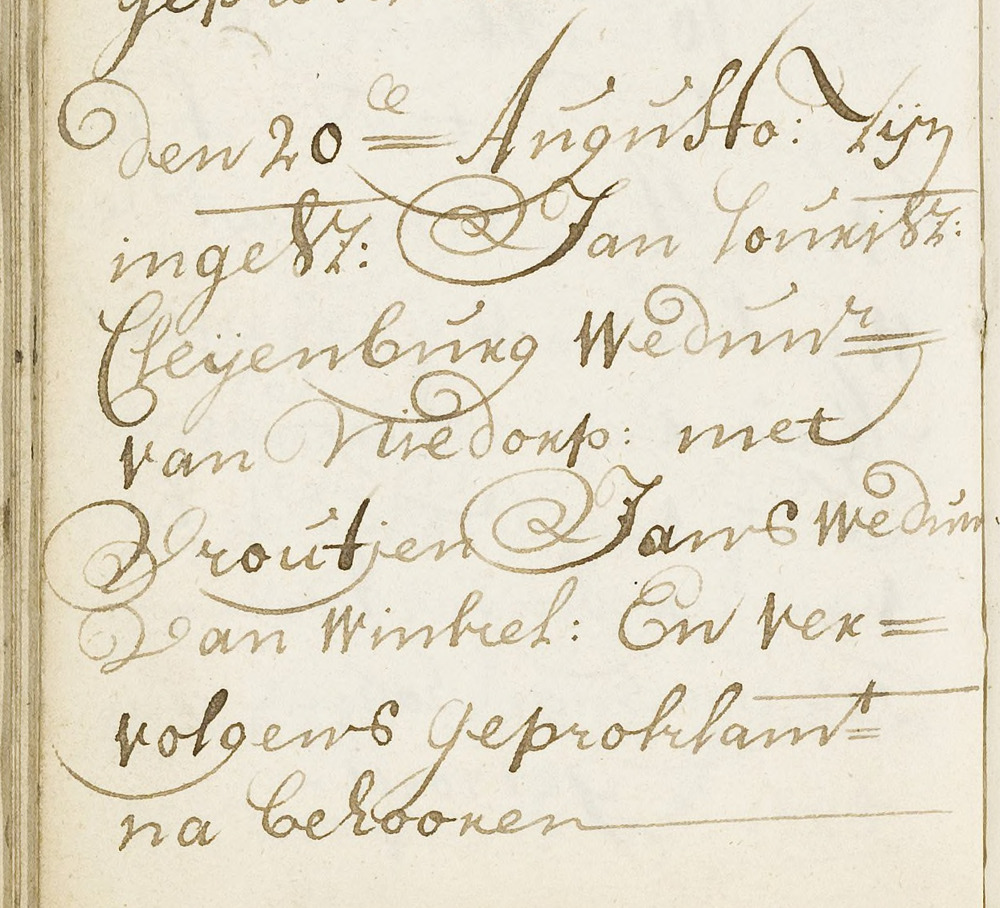 den 20 ce = Augusto: Zijn
ingesz: Jan Lourisz:
Cleijenburg Weduwr=
van Niedorp: met
Troutjen Jans Weduw.
Van Winkel: En ver=
volgens geproklamt=
na behooren